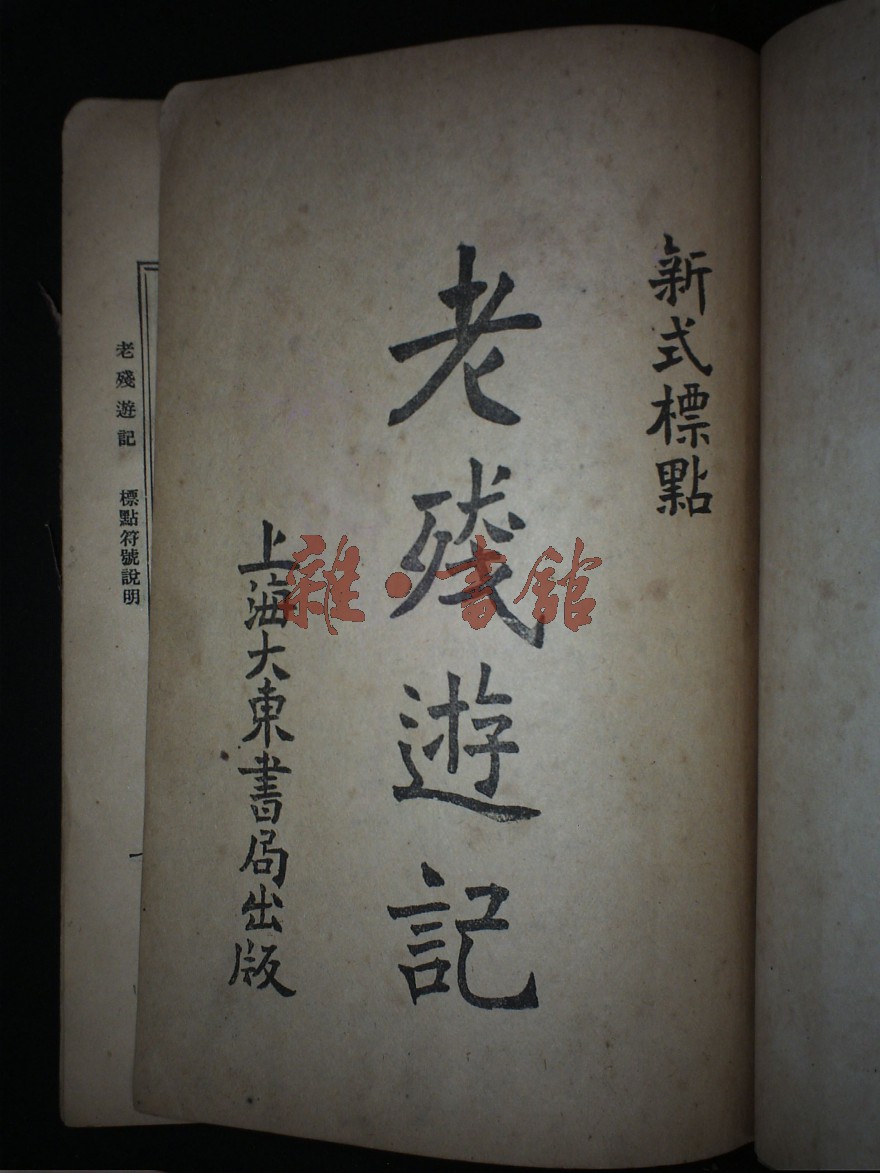 新式標點
老殘遊記
上海大東書局出版
老殘遊記 標點符號說明
雜·書館